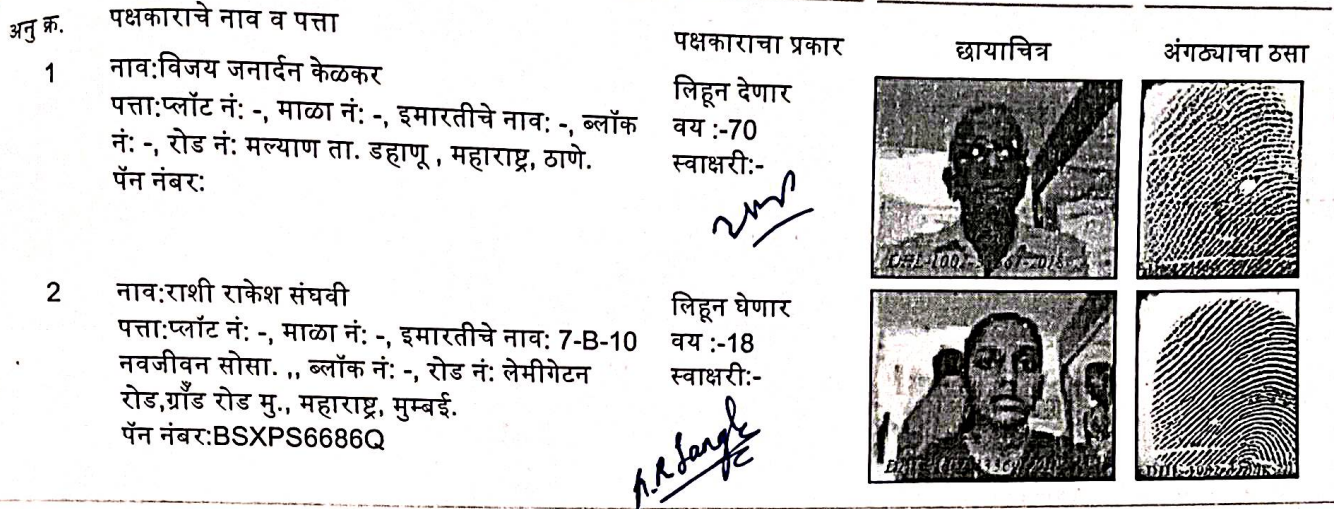 अनु क्र. पक्षकाराचे नाव व पत्ता पक्षकाराचा प्रकार छायाचित्र अंगठ्याचा ठसा
1 नाव:विजय जनार्दन केळकर
पत्ता:प्लॉट नं: -, माळा नं: -, इमारतीचे नाव: -, ब्लॉक
नं: -, रोड नं: मल्याण ता. डहाणू , महाराष्ट्र, ठाणे.
पॅन नंबर:
लिहून देणार
वय :-70
स्वाक्षरी:-
2 नाव:राशी राकेश संघवी
पत्ता:प्लॉट नं: -, माळा नं: -, इमारतीचे नाव: 7-B-10
नवजीवन सोसा. ,, ब्लॉक नं: -, रोड नं: लेमीगेटन
रोड,ग्राँड रोड मु., महाराष्ट्र, मुम्बई.
पॅन नंबर:BSXPS6686Q
लिहून घेणार
वय :-18
स्वाक्षरी:-